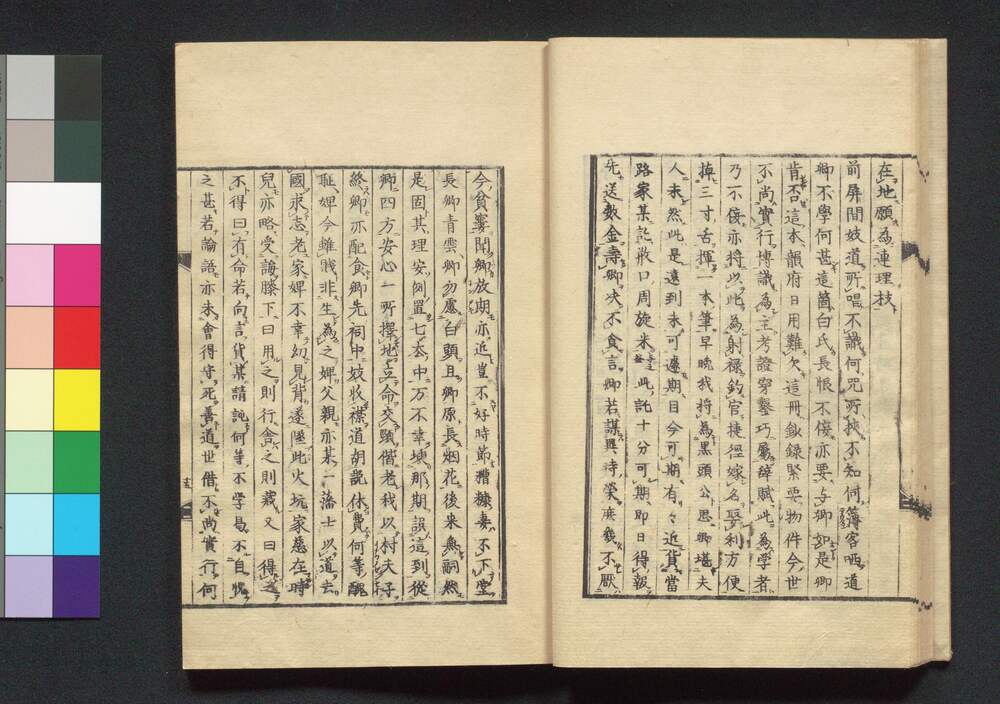 在地願為連理枝
前屏間妓道所唱不識何咒所挾不知何簿客哂道
卿不學何甚這箇白氏長恨不倍亦要与卿如是卿
肯否這本韻府日用難欠這冊錄緊要物件今世
不尚實行博識為主考證穿鑿巧屬辭賦此為學者
乃不倍亦將以此為射祿釣官捷徑嫁名娶利方便
掉三寸舌揮一本筆早晚我將為黑頭公思卿堪夫
人未然此是遠到未可遽期目今可期有々近貨當
路家某託漱口周旋米此託十分可期即日得報
先送數金壽卿決不食言卿若謀與時榮庶幾不厭
今貧窶聞卿放期亦近豈不好時節糟糠妻不下堂
長卿青雲卿勿慮白頭且卿原長烟花後來無嗣然
是固其理安例置七去中万不幸墺那期誤這到從
卿四方安心一所擇地立命交頸偕老我以村夫子
終卿亦配食卿先祠中妓收襟道胡說休費何等醜
恥婢今雖賤非生為之婢父親亦某一藩士以道去
國求志老家婢不幸幼見背遂墮此火坑家慈在時
兒亦略受誨膝下曰用之則行舍之則蔵又曰得之
不得曰有命若向言貨某請託何等不学易不自愧
之甚若論語亦未會得守死善道世借不尚實行何